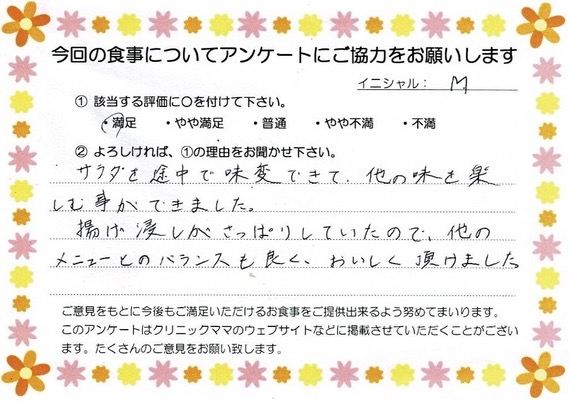 今回の食事についてアンケートにご協力をお願いします
イニシャル： M
① 該当する評価に〇を付けて下さい。
・満足 ・やや満足 ・普通 ・やや不満 ・不満
② よろしければ、①の理由をお聞かせ下さい。
サラダを途中で味変できて、他の味を楽
しむ事ができました。
揚げ浸しがさっぱりしていたので、他の
メニューとのバランスも良く、おいしく頂けました
ご意見をもとに今後もご満足いただけるお食事をご提供出来るよう努めてまいります。
このアンケートはクリニックママのウェブサイトなどに掲載させていただくことがござい
ます。たくさんのご意見をお願い致します。